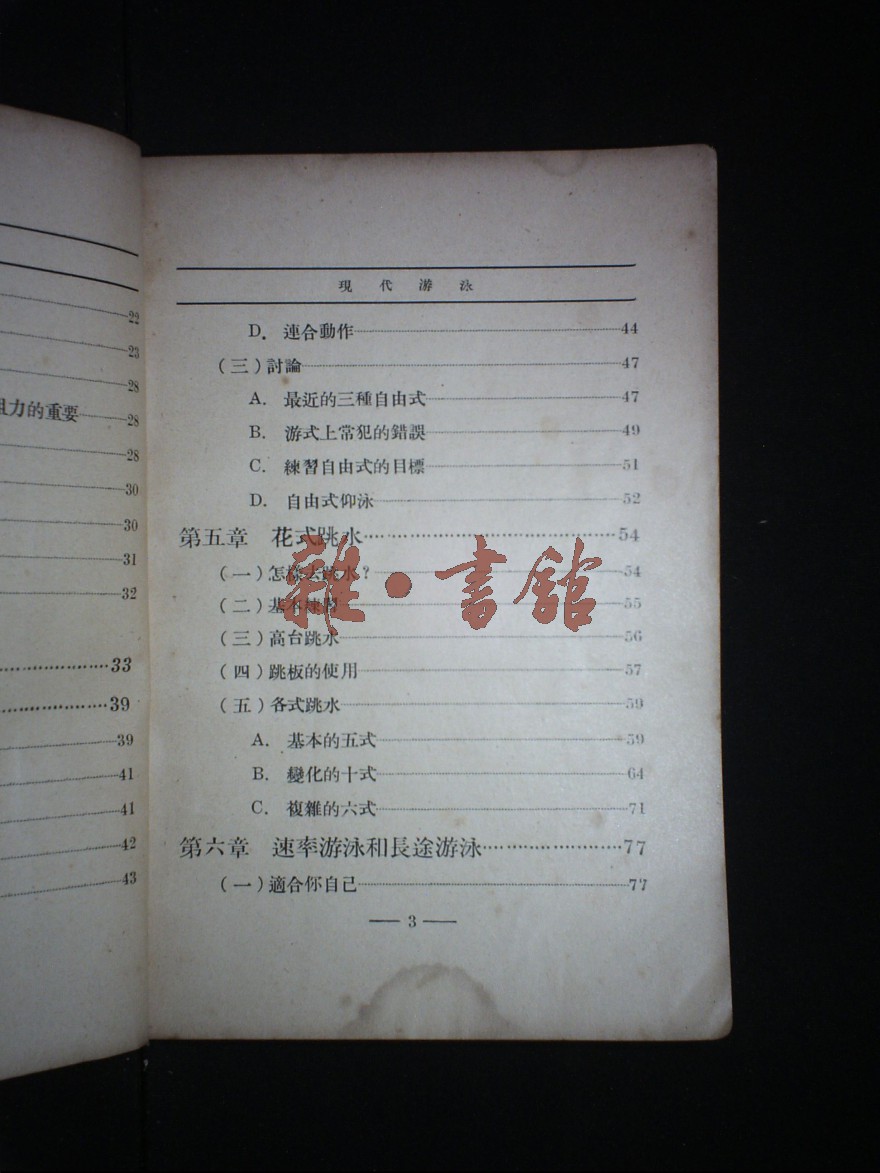 22
23
28
阻力的重要 28
28
30
30
31
32
33
39
39
41
41
42
43
現代游泳
D. 連合動作 44
(三)討論 47
A. 最近的三種自由式 47
B. 游式上常犯的錯誤 49
C. 練習自由式的目標 51
D. 自由式仰泳 52
第五章 花式跳水 54
(一)怎樣去跳水? 54
(二)基本練習 55
(三)高台跳水 56
(四)跳板的使用 57
(五)各式跳水 59
A. 基本的五式 59
B. 變化的十式 64
C. 複雜的六式 71
第六章 速率游泳和長途游泳 77
(一)適合你自己 77
— 3 —
雜·書館